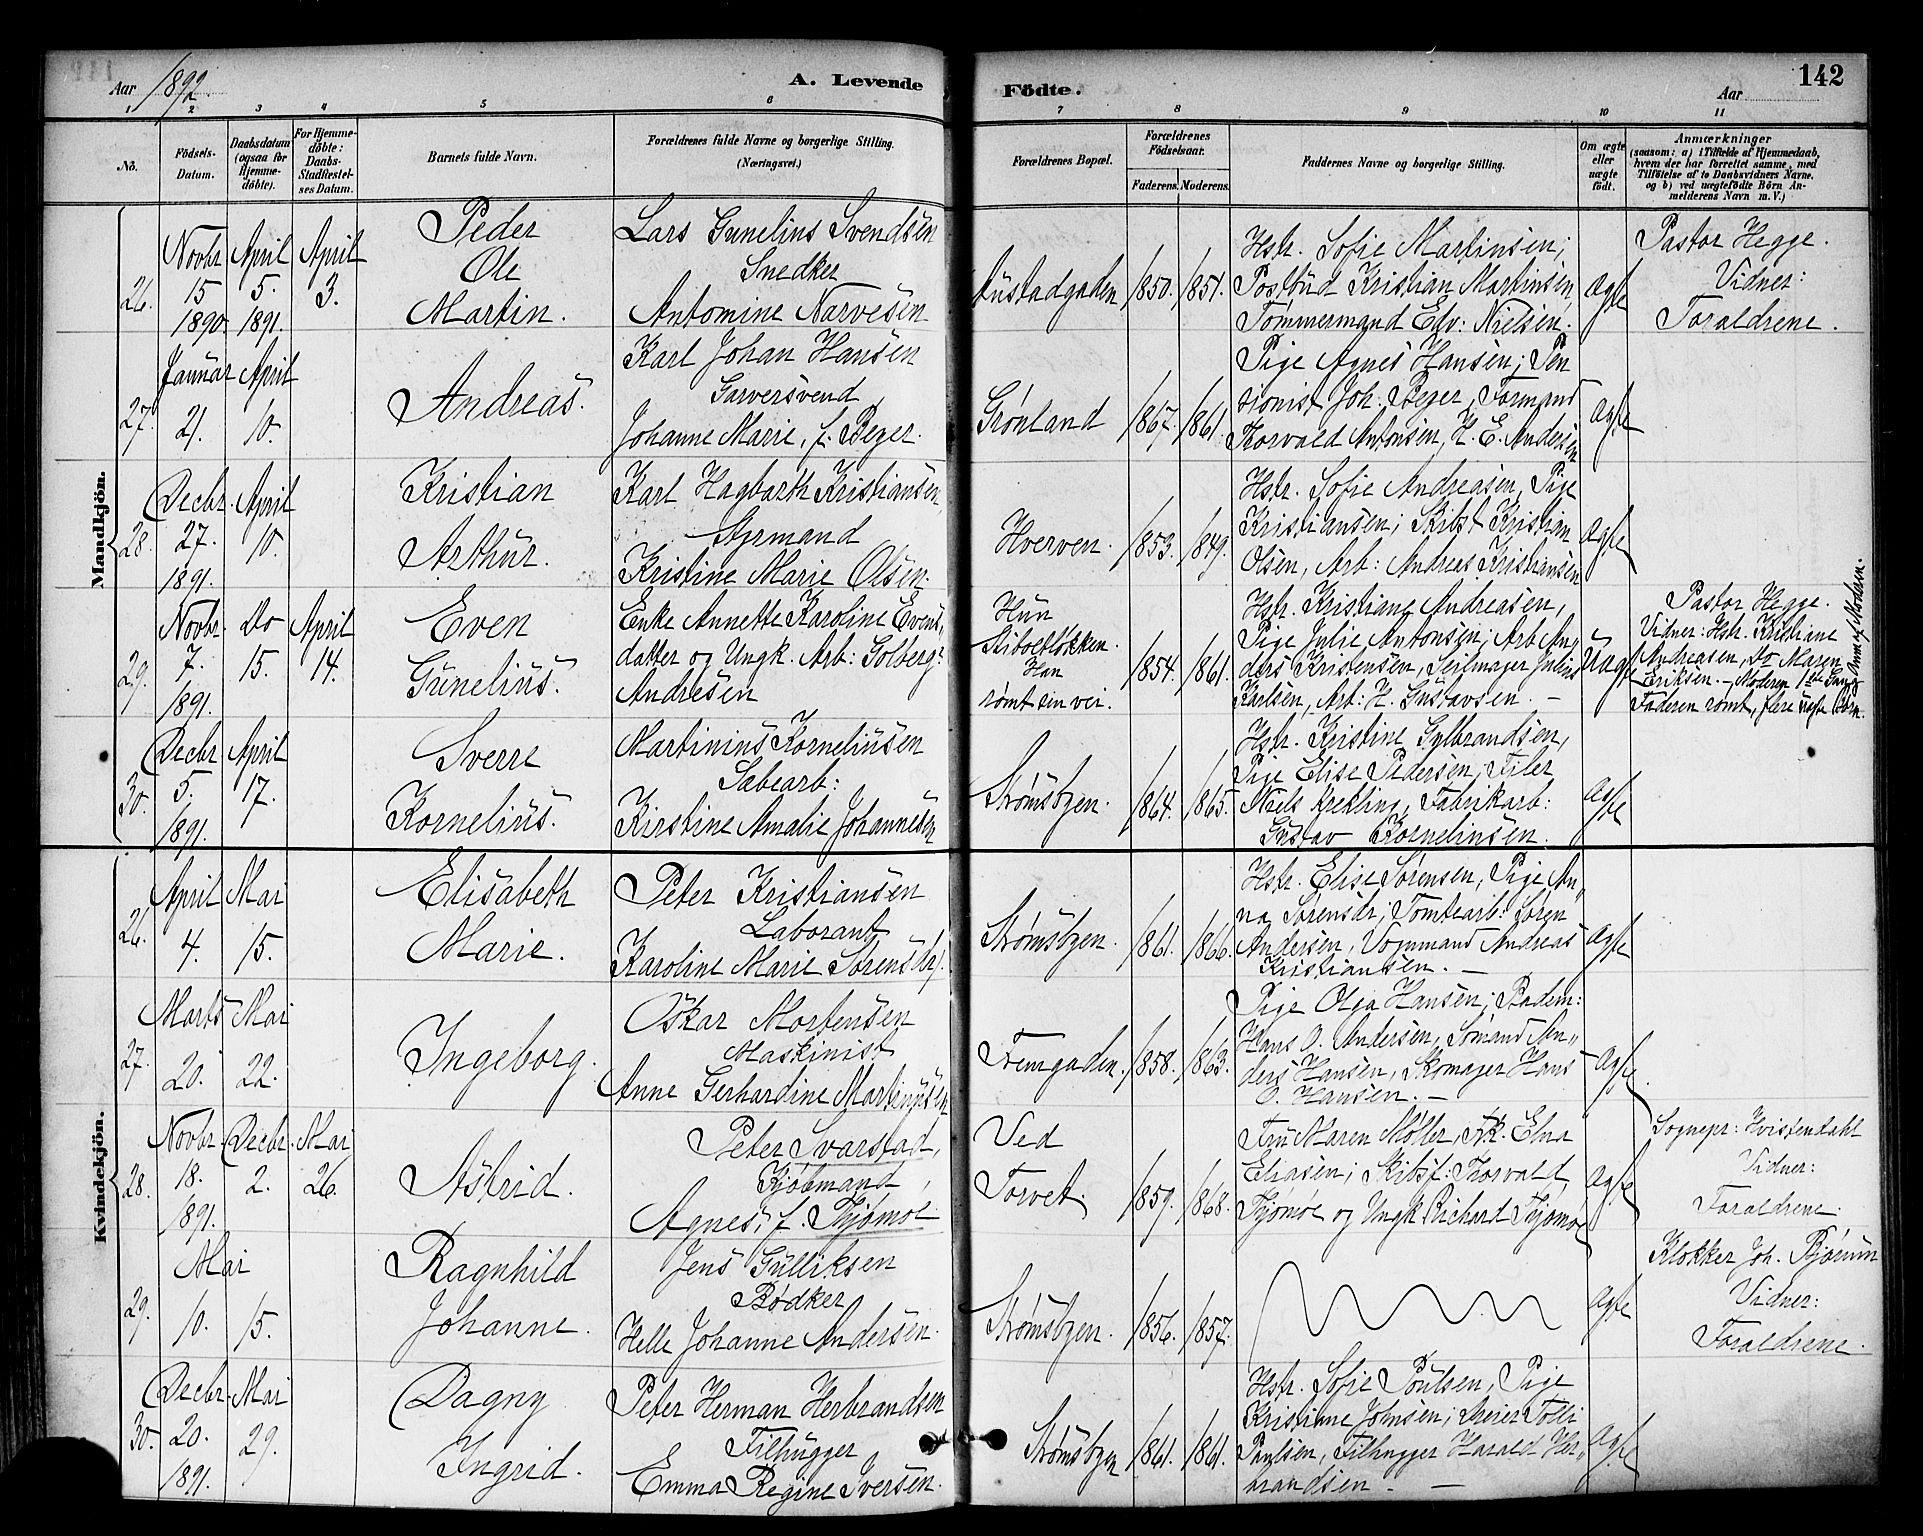 Aar 1892.
A. Levende
Fødte.
142
Aar
1 2 3 4 5 6 7 8 9 10 11
No.
Fødsels-Datum.
Daabsdatum (ogsaa for Hjemme-døbte).
For Hjemme-døbte: Daabs-Stadfæstel-ses Datum.
Barnets fulde Navn.
Forældrenes fulde Navne og borgerlige Stilling. (Næringsvei.)
Forældrenes Bopæl.
Forældrenes Fødselsaar.
Faderens. Moderens.
Faddernes Navne og borgerlige Stilling.
Om ægte eller uægte født.
Anmærkninger
(saasom: a) i Tilfælde af Hjemmedaab, hvem der har forrettet samme, med Tilføielse af to Daabsvidners Navne, og b) ved uægtefødte Børn An-melderens Navn m. V.)
Mandkjøn.
26. Novbr 15 1890. April 5. 1891. April 3.
Peder
Ole
Martin.
Lars Gunelius Svendsen
Snedker
Antomine Narvesen
1850. 1851.
Hstr. Sofie Martinsen;
Postbud Kristian Martinsen,
Tømmermand Edv: Nielsen.
Ægte
Pastor Hegge.
Vidner:
Forældrene.
27. Januar 21. April 10.
Andreas.
Karl Johan Hansen
Garversvend
Johanne Marie, f. Beger.
Grønland
1867. 1861.
Pige Agnes Hansen; Pen
sionist Joh. Beger, Formand
Thorvald Antonsen, H. E. Andersen
Ægte
28. Decbr. 27. 1891. April 10.
Kristian
Arthur.
Karl Hagbarth Kristiansen,
Styrmand
Kristine Marie Olsen.
Hverven.
1853. 1849.
Hstr. Sofie Andreasen, Pige
Kristiansen; Skibst. Kristian
Olsen, Arb: Andreas Kristiansen
Ægte
29. Novbr. 7. 1891. Do 15. April 14.
Even
Gunelius.
Enke Annette Karoline Evens,
datter og Ungk. Arb: Solberg
Andresen
Hun
Stiboltløkken.
Han
rømt sin vei.
1854. 1861.
Hstr. Kristiane Andreasen,
Pige Julie Antonsen; Arb. An,
ders Kristensen, Seilmager Julius
Karlsen, Arb: H. Gustavsen. -
Uægte
Pastor Hegge.
Vidner: Hstr. Kristiane
Andreasen, Do Maren
Eriksen. - Moderen 1ste Gang
Faderen rømt, flere uægte Børn.
Anm. af Moderen.
30. Decbr. 5. 1891. April 17.
Sverre
Kornelius.
Martinius Korneliusen
Sabearb:
Kirstine Amalie Johannesen
Strømsbyen.
1864. 1865.
Hstr. Kristine Gylbrandsen,
Pige Elise Pedersen; Filer
Niels Krekling, Fabrikarb:
Gustav Korneliusen.
Ægte
Kvindekjøn.
26. April 4. Mai 15.
Elisabeth
Marie.
Peter Kristiansen
Laborant
Karoline Marie Sørensdr.
Strømsbyen.
1861. 1866.
Hstr. Elise Sørensen, Pige An,,
na Sørensdr; Tomtearb: Søren
Andersen, Vognmand Andreas
Kristiansen. -
Ægte
27. Marts 20. Mai 22.
Ingeborg.
Oskar Mortensen
Maskinist
Anne Gerhardine Martinussen
Fremgaden.
1858. 1863.
Pige Olga Hansen; Badem:
Hans O. Andersen, Sømand An,,
ders Hansen, Skomager Hans
O. Hansen. -
Ægte
28. Novbr. 18. 1891. Decbr. 2. Mai 26.
Astrid.
Peter Svarstad,
Kjøbmand,
Agnes, f. Thjømøe
Ved
Torvet.
1859. 1868.
Fru Maren Møller, Frk. Elna
Eliasen; Skibsf: Thorvald
Thjømøe og Ungk. Richard Thjømøe
Ægte
Sognepr: Hvistendahl
Vidner:
Forældrene.
29. Mai 10. 15.
Ragnhild
Johanne.
Jens Gulliksen
Bødker
Helle Johanne Andersen.
Strømsbyen.
1856. 1857.
Ægte
Klokker Joh. Bjørum
Vidner:
Forældrene.
30. Decbr. 20. 1891. Mai 29.
Dagny
Ingrid.
Peter Herman Herbrandsen
Filhugger
Emma Regine Iversen.
Strømsbyen
1861. 1861.
Hstr. Sofie Poulsen, Pige
Kristiane Johnsen; Dreier Tolli
Paulsen, Filhugger Harald Her,,
brandsen. -
Ægte